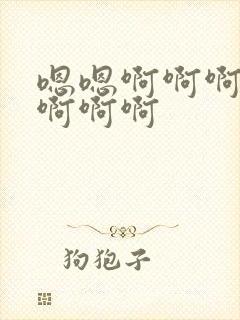 嗯嗯啊啊啊
啊啊啊
狗狍子